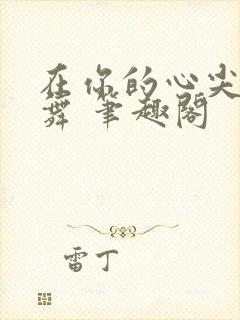 在你的心尖
舞 笔趣阁
雷丁